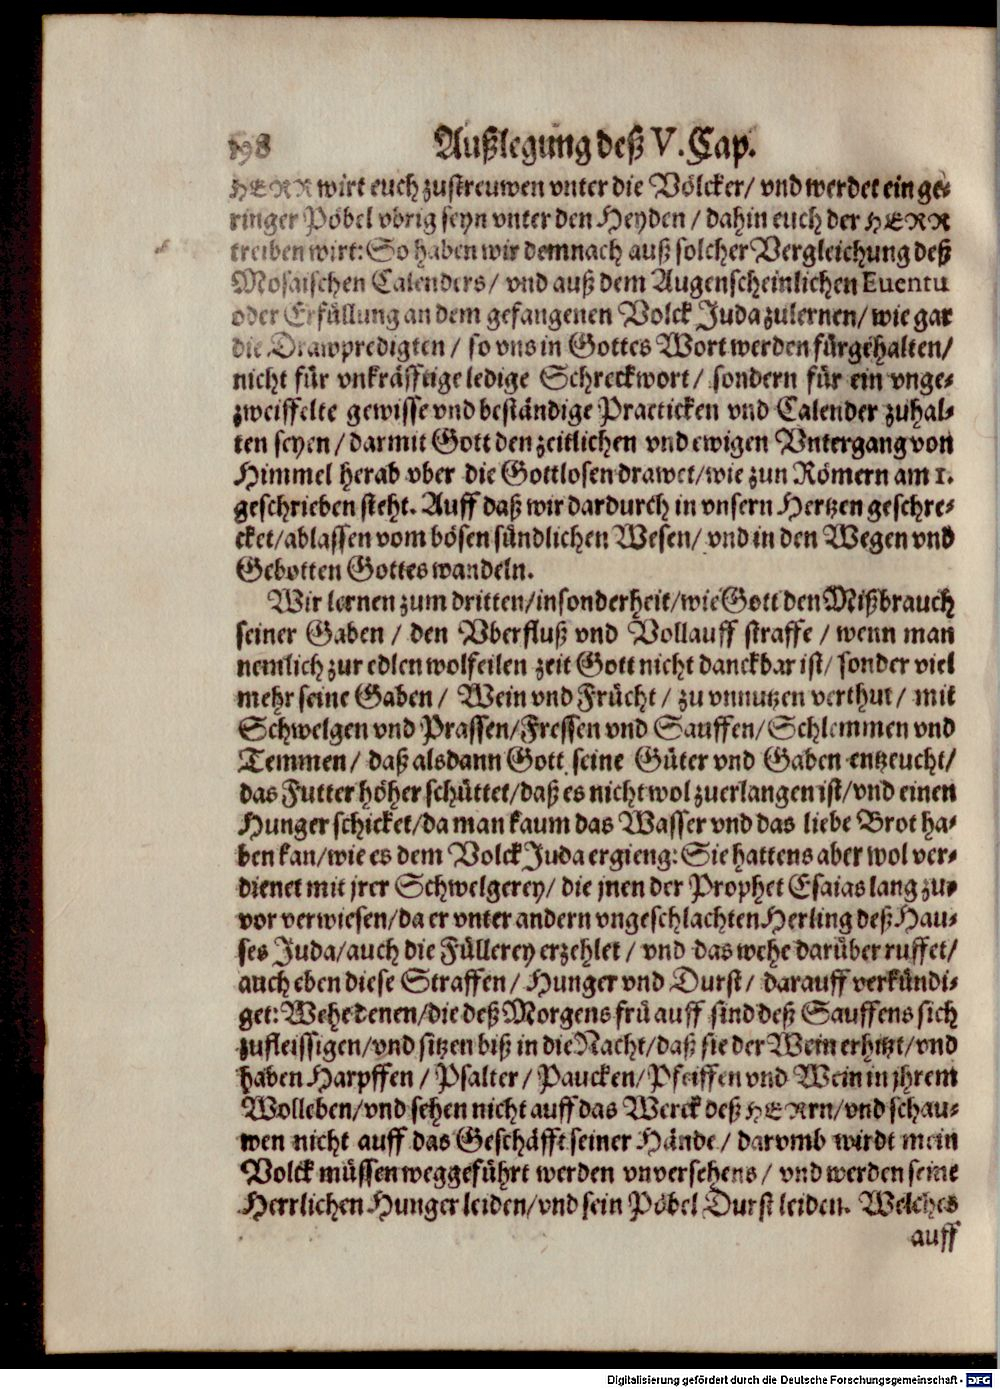 198 Außlegung deß V. Cap.
HERR wirt euch zustreuwen vnter die Völcker/ vnd werdet ein ge-
ringer Pöbel vbrig seyn vnter den Heyden / dahin euch der HERR
treiben wirt: So haben wir demnach auß solcher Vergleichung deß
Mosaischen Calenders/ vnd auß dem Augenscheinlichen Euentu
oder Erfüllung an dem gefangenen Volck Juda zulernen/ wie gar
die Drawpredigten / so vns in Gottes Wort werden fürgehalten/
nicht für vnkräfftige ledige Schreckwort/ sondern für ein vnge-
zweiffelte gewisse vnd beständige Practicken vnd Calender zuhal-
ten seyen / darmit Gott den zeitlichen vnd ewigen Vntergang von
Himmel herab vber die Gottlosen drawet/wie zun Römern am 1.
geschrieben steht. Auff daß wir dardurch in vnsern Hertzen geschre-
cket/ablassen vom bösen sündlichen Wesen/ vnd in den Wegen vnd
Gebotten Gottes wandeln.
Wir lernen zum dritten/insonderheit/wie Gott den Mißbrauch
seiner Gaben / den Vberfluß vnd Vollauff straffe / wenn man
nemlich zur edlen wolfeilen zeit Gott nicht danckbar ist/ sonder viel
mehr seine Gaben / Wein vnd Frücht / zu vnnutzen verthut / mit
Schwelgen vnd Prassen/Fressen vnd Sauffen/Schlemmen vnd
Temmen / daß alsdann Gott seine Güter vnd Gaben entzeucht/
das Futter höher schüttet/daß es nicht wol zuerlangen ist/vnd einen
Hunger schicket/da man kaum das Wasser vnd das liebe Brot ha-
ben kan/wie es dem Volck Juda ergieng: Sie hattens aber wol ver-
dienet mit jrer Schwelgerey/ die jnen der Prophet Esaias lang zu-
vor verwiesen/da er vnter andern vngeschlachten Herling deß Hau-
ses Juda/auch die Füllerey erzehlet / vnd das wehe darüber ruffet/
auch eben diese Straffen / Hunger vnd Durst / darauff verkündi-
get: Wehe denen/die deß Morgens frü auff sind deß Sauffens sich
zufleissigen/vnd sitzen biß in die Nacht/daß sie der Wein erhitzt/vnd
haben Harpffen / Psalter / Paucken/ Pfeiffen vnd Wein in jhrem
Wolleben/vnd sehen nicht auff das Werck deß HERrn/vnd schau-
wen nicht auff das Geschäfft seiner Hände / darvmb wirdt mein
Volck müssen weggeführt werden vnversehens / vnd werden seine
Herrlichen Hunger leiden/vnd sein Pöbel Durst leiden. Welches
auff
Digitalisierung gefördert durch die Deutsche Forschungsgemeinschaft - DFG